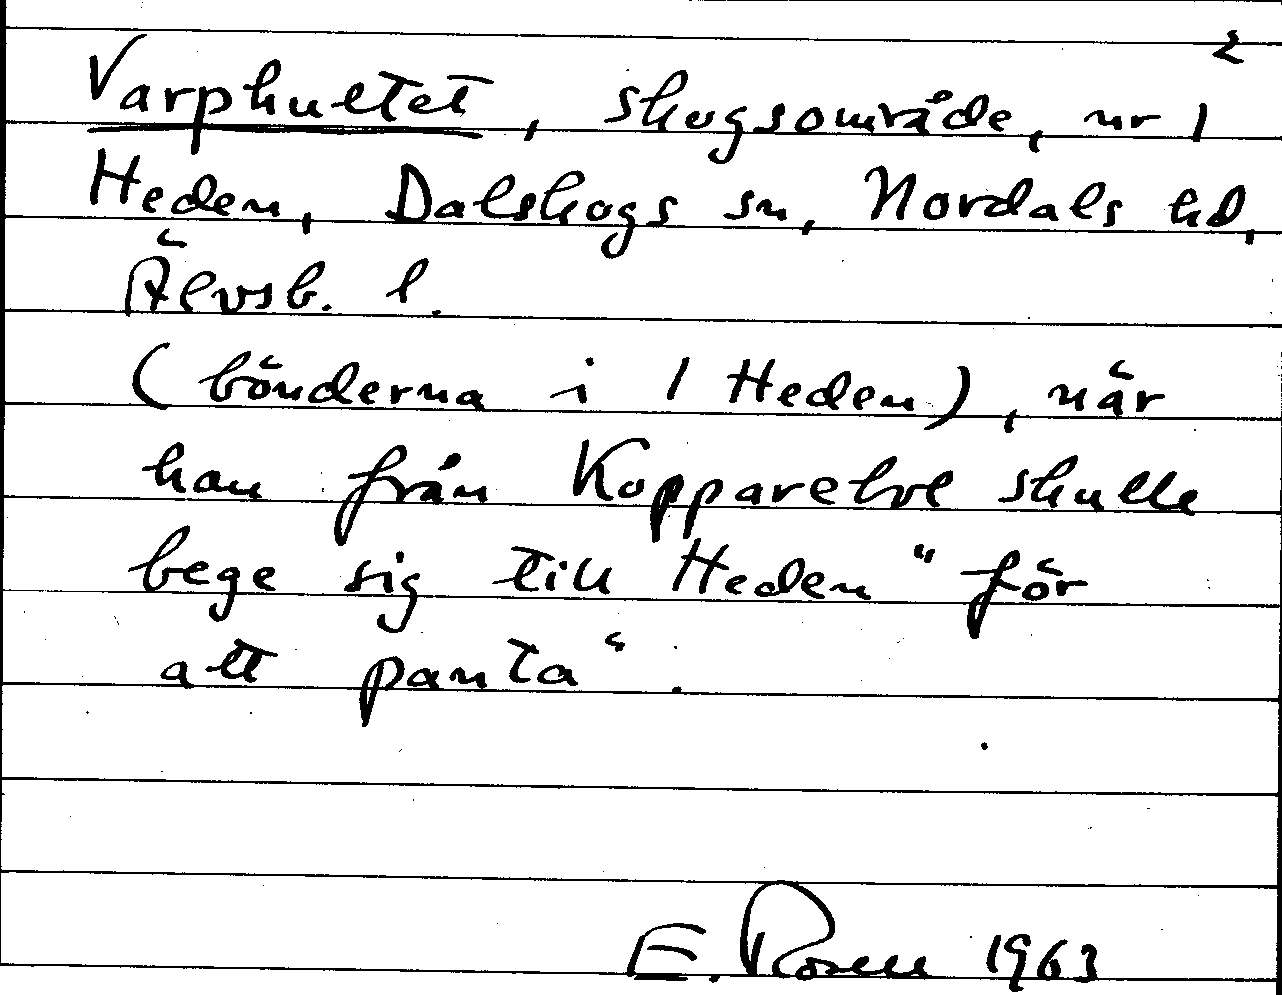 2
Varphultet, skogsområde, nr 1
Heden, Dalskogs sn, Nordals hd,
Älvsb. l.
(bönderna i 1 Heden), när
han från Kopparetvet skulle
bege sig till Heden "för
att panta".
E. Rosen 1963